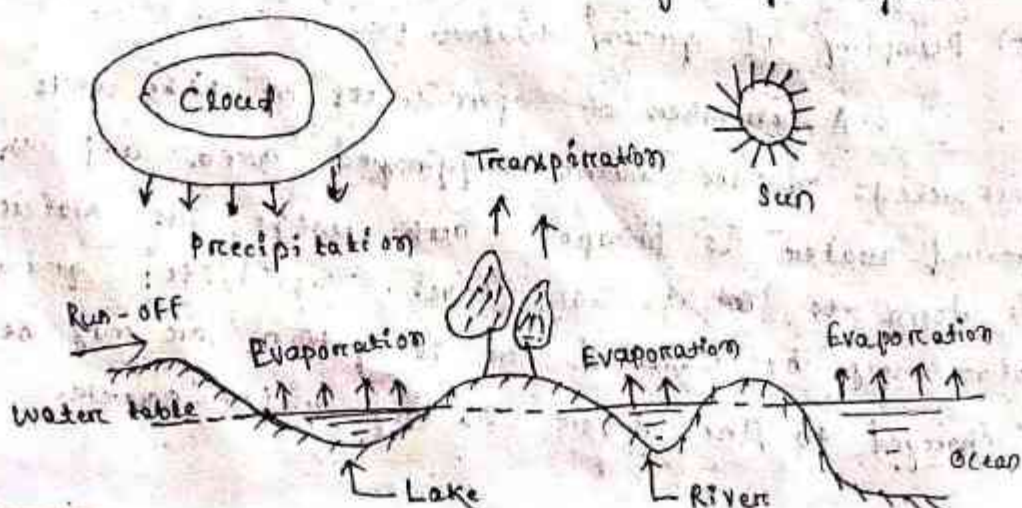 Cloud
Sun
Transpiration
Precipitation
Run-OFF
Evaporation
Evaporation
Evaporation
Water table
Ocean
Lake
River